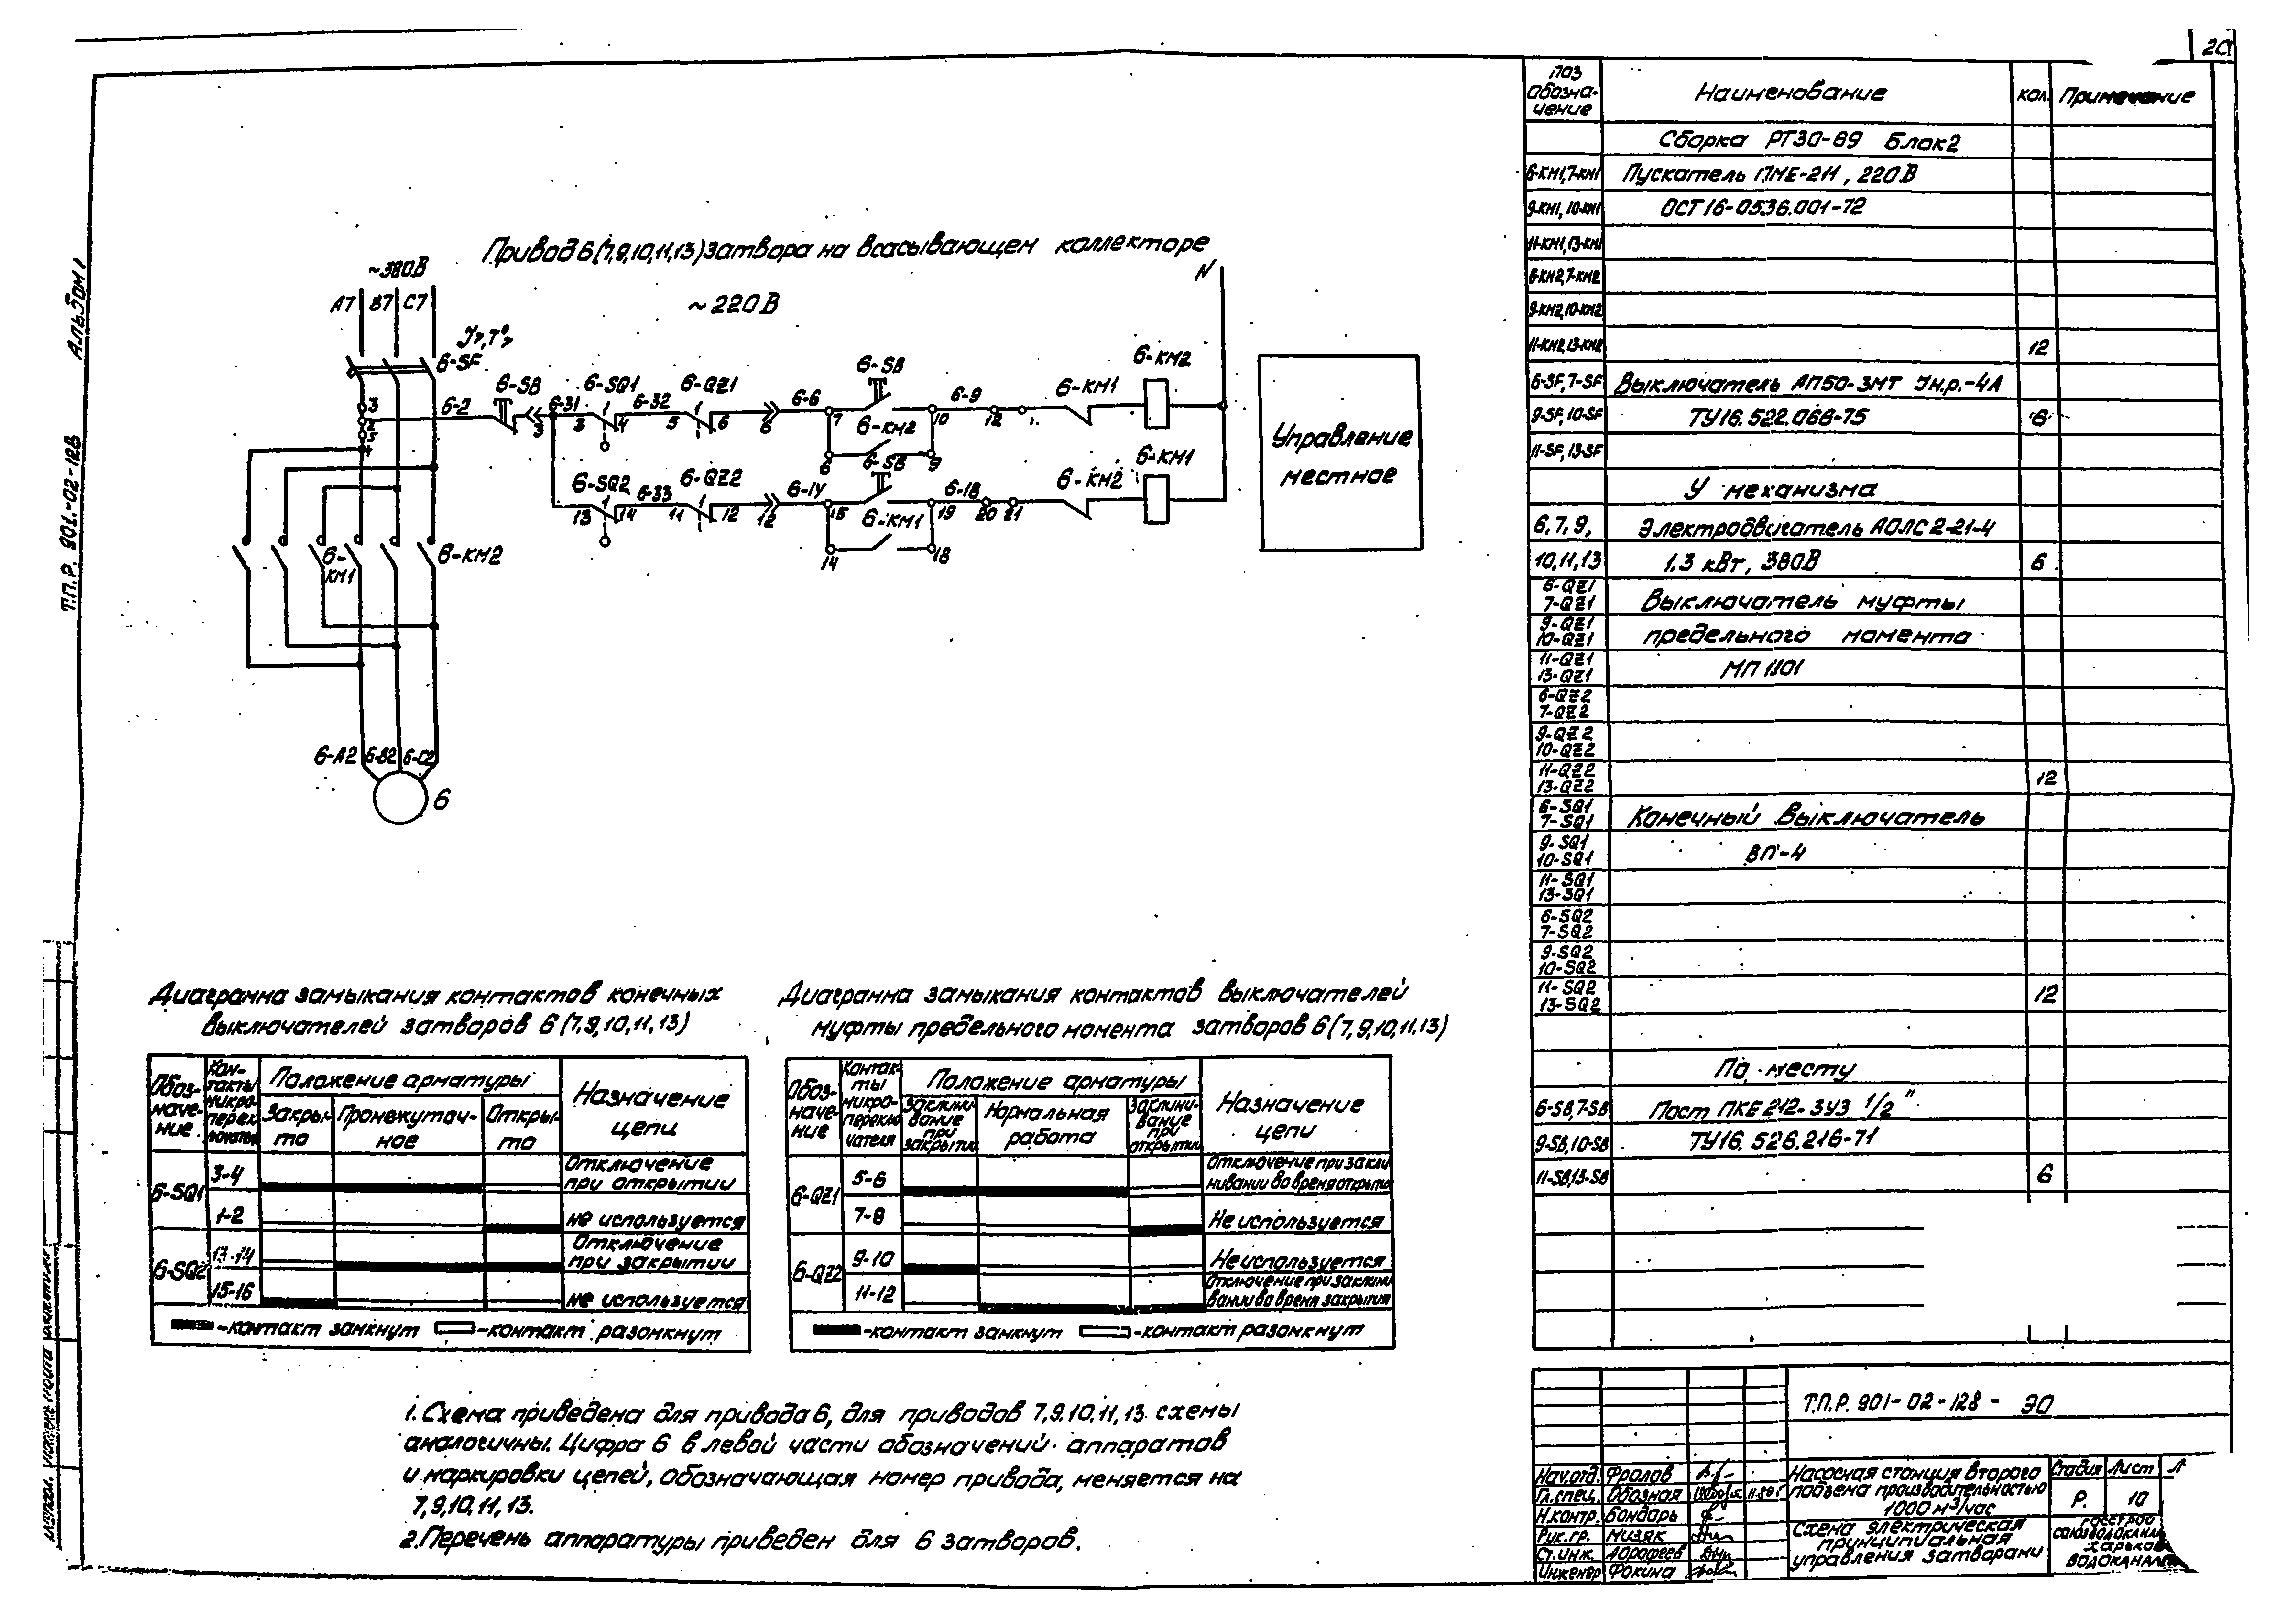 Альбом 1
Т.П.Р. 901-02-128
Привод 6(7,9,10,11,13) затвора на всасывающем коллекторе
~380В
А7 В7 С7
~220В
N
6-SF
6-2
6-SB
6-31
6-SQ1
6-32
6-QZ1
6-6
6-SB
6-9
6-КМ1
6-КМ2
3
3
3
4
5
6
6
7
10
12
6-КМ2
6
9
6-SQ2
6-33
6-QZ2
6-14
6-SB
6-18
6-КМ2
6-КМ1
13
14
11
12
12
15
19
20
21
6-КМ1
14
18
6-КМ1
6-КМ2
6-А2 6-В2 6-С2
6
Управление
местное
Диаграмма замыкания контактов конечных
выключателей затворов 6 (7,9,10,11,13)
Обозначе-
ние
Кон-
такты
микро-
Положение арматуры
Назначение
цепи
Закры-
то
Промежуточ-
ное
Откры-
то
6-SQ1
3-4
Отключение
при открытии
1-2
не используется
6-SQ2
13-14
Отключение
при закрытии
15-16
не используется
-контакт замкнут
-контакт разомкнут
Диаграмма замыкания контактов выключателей
муфты предельного момента затворов 6 (7,9,10,11,13)
Обоз-
наче-
ние
Контак-
ты
микро-
переклю
чателя
Положение арматуры
Назначение
цепи
Заклини-
вание
при
закрытии
Нормальная
работа
Заклини-
вание
при
открытии
6-QZ1
5-6
Отключение при закли
нивании во время открыти
7-8
Не используется
6-QZ2
9-10
Не используется
11-12
Отключение при заклини
вании во время закрытия
-контакт замкнут
-контакт разомкнут
1. Схема приведена для привода 6, для приводов 7,9,10,11,13 схемы
аналогичны. Цифра 6 в левой части обозначений аппаратов
и маркировки цепей, обозначающая номер привода, меняется на
7,9,10,11,13.
2. Перечень аппаратуры приведен для 6 затворов.
Поз
обозна-
чение
Наименование
кол.
Примечание
Сборка РТ30-89 Блок2
6-КМ1,7-КМ1 Пускатель ПМЕ-211, 220В
9-КМ1, 10-КМ1 ОСТ16-0536.001-72
11-КМ1,13-КМ1
6-КМ2,7-КМ2
9-КМ2,10-КМ2
11-КМ2,13-КМ2 12
6-SF,7-SF Выключатель АП50-3МТ Jн.р.-4А
9-SF,10-SF ТУ16.522.066-75 6
11-SF,13-SF
У механизма
6,7,9, Электродвигатель АОЛС2-21-4
10,11,13 1.3 кВт, 380В 6
6-QZ1
7-QZ1 Выключатель муфты
9-QZ1
10-QZ1 предельного момента
11-QZ1
13-QZ1 МП 1101
6-QZ2
7-QZ2
9-QZ2
10-QZ2
11-QZ2
13-QZ2 12
6-SQ1
7-SQ1 Конечный выключатель
9-SQ1
10-SQ1 ВП-4
11-SQ1
13-SQ1
6-SQ2
7-SQ2
9-SQ2
10-SQ2
11-SQ2
13-SQ2 12
По месту
6-SB,7-SB Пост ПКЕ 212-3У3 1/2"
9-SB,10-SB ТУ16.526.216-71
11-SB,13-SB 6
Т.П.Р. 901-02-128- ЭО
Нач.отд. Фролов
Гл.спец. Обозная 11.80г
Н.контр. Бондарь
Рук.гр. Мизяк
Ст.инж. Дорофеев
Инженер Фокина
Насосная станция второго
подъема производительностью
1000 м³/час
Стадия Лист
Р. 10
Схема электрическая
принципиальная
управления затворами
Госстрой
Союзводоканал
Харьков
водоканал